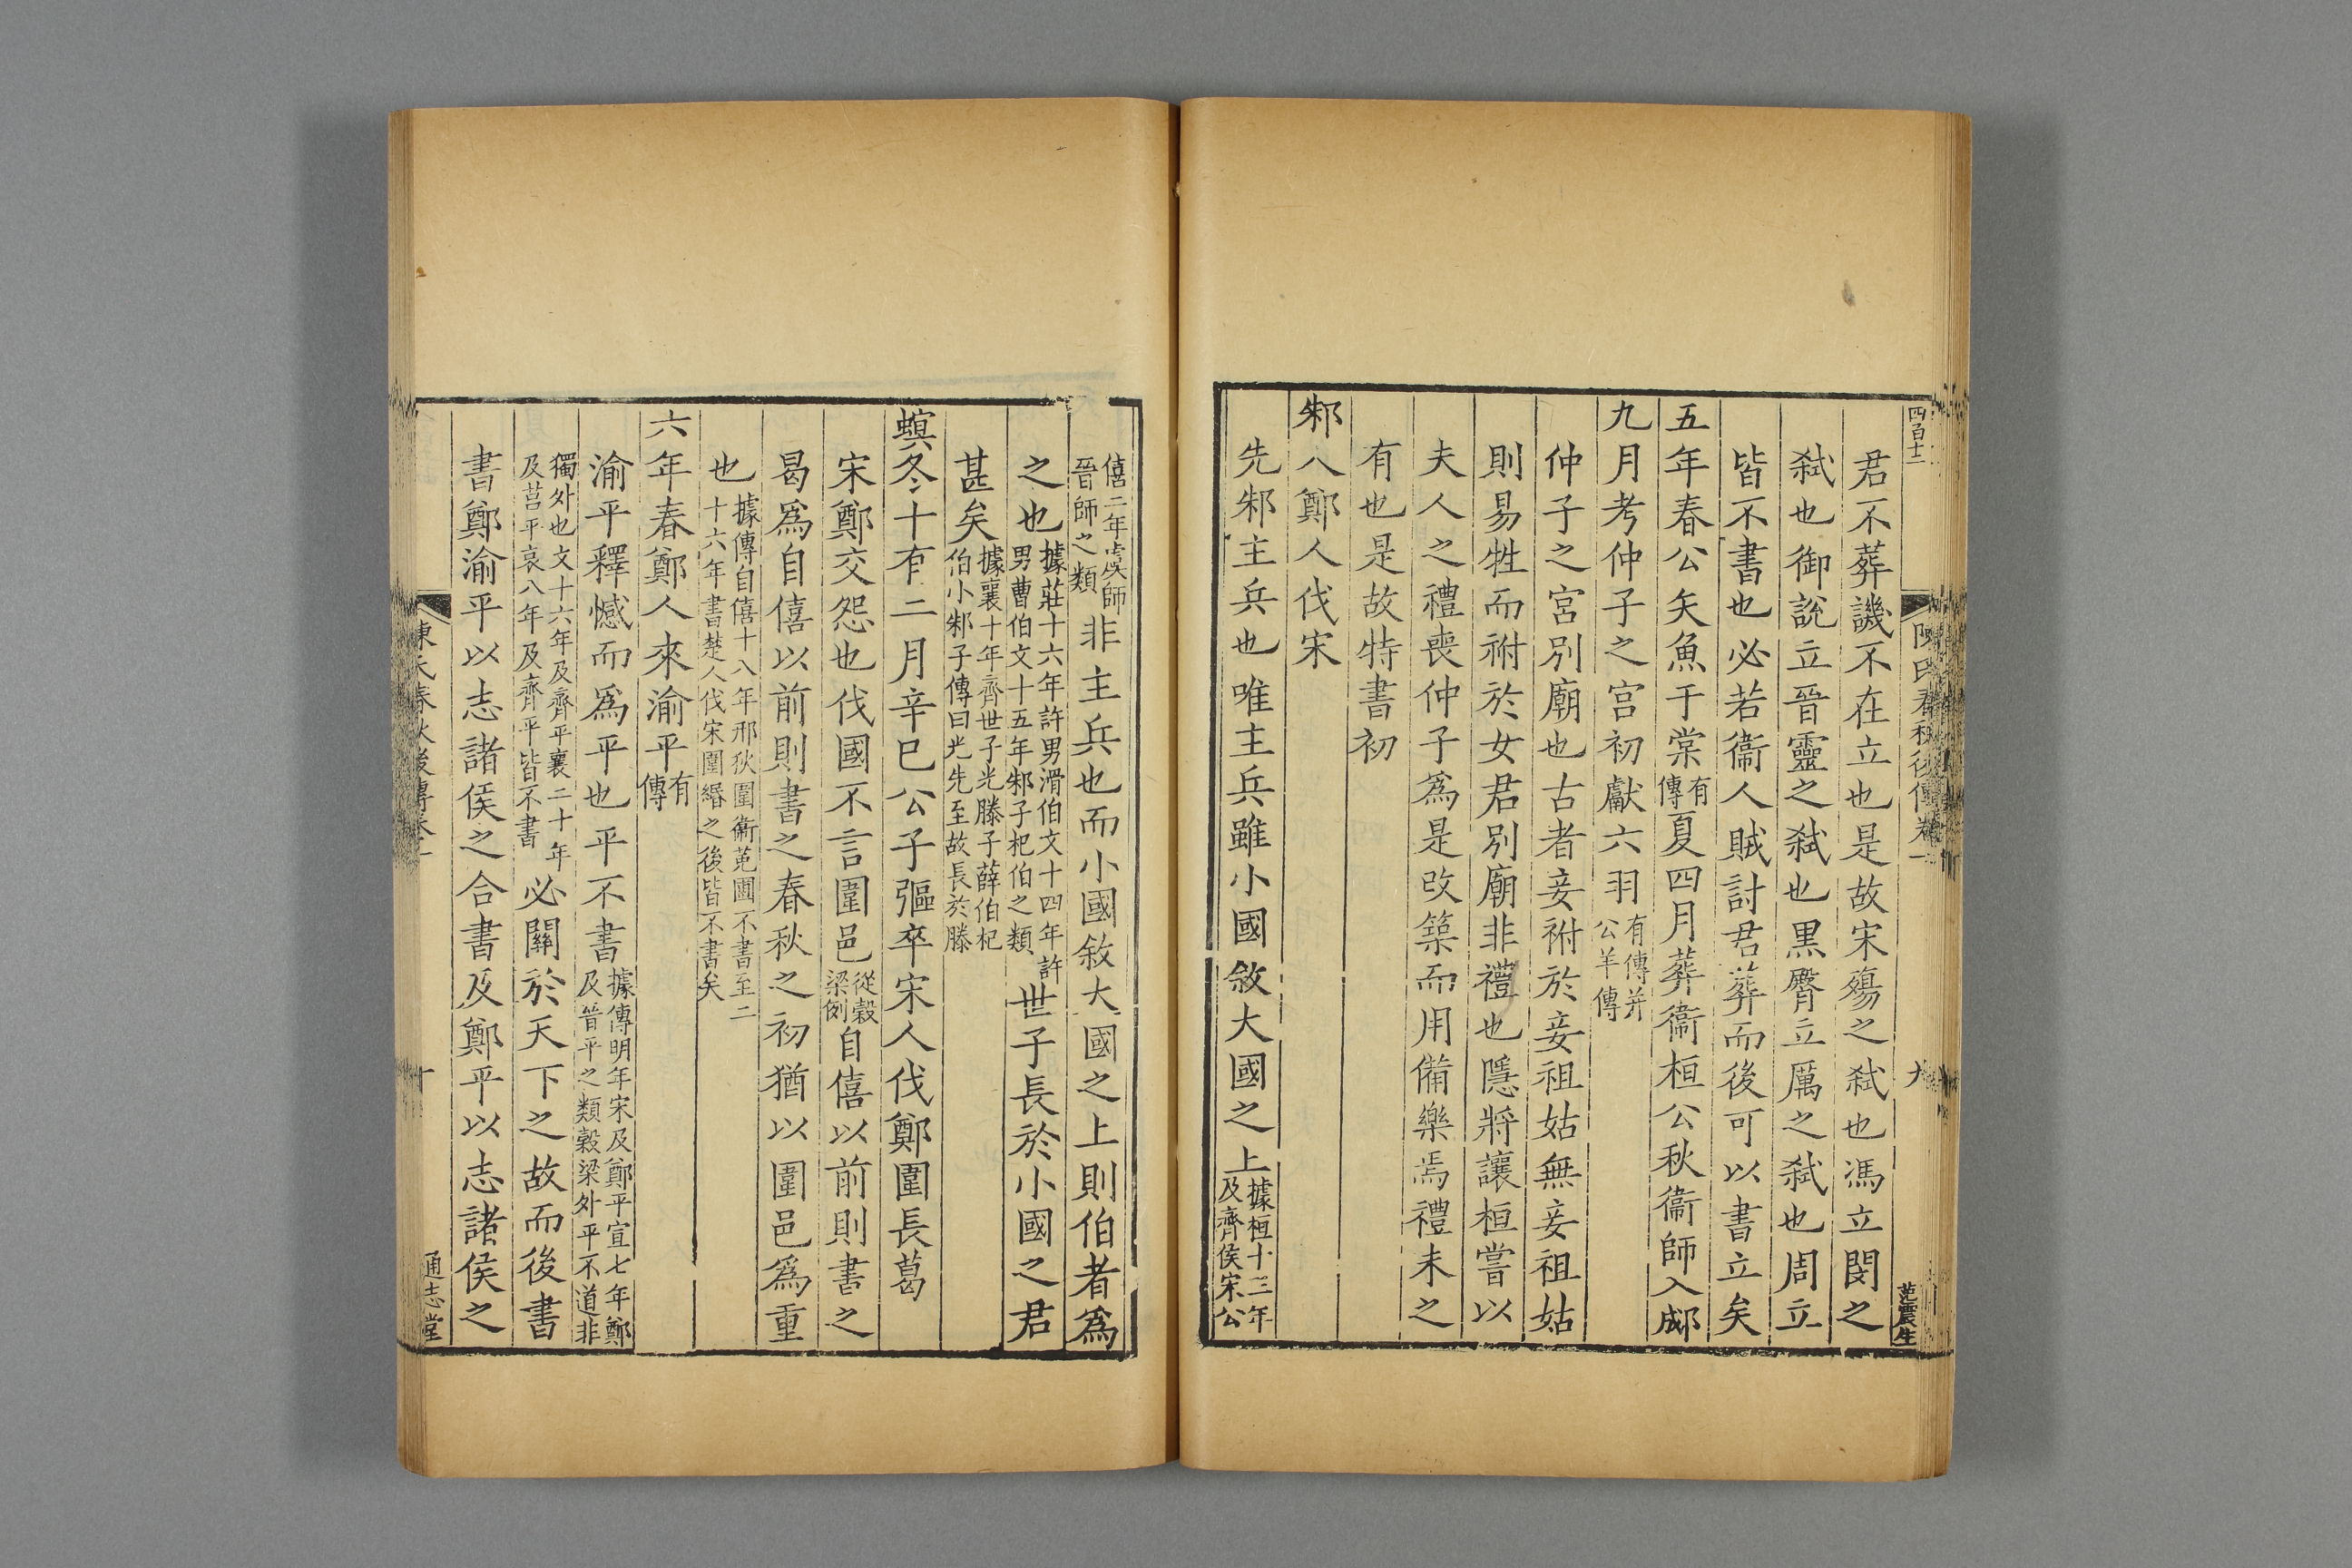 四百十二
陳氏春秋後傳卷一
九
范震生
君不葬譏不在立也是故宋殤之弑也馮立閔之
弑也御說立晉靈之弑也黒臀立厲之弑也周立
皆不書也必若衞人賊討君葬而後可以書立矣
五年春公矢魚于棠有傳夏四月葬衞桓公秋衞師入郕
九月考仲子之宮初獻六羽有傳并公羊傳
仲子之宮別廟也古者妾祔於妾祖姑無妾祖姑
則易牲而祔於女君別廟非禮也隱將讓桓嘗以
夫人之禮喪仲子爲是改築而用備樂焉禮未之
有也是故特書初
邾人鄭人伐宋
先邾主兵也唯主兵雖小國敘大國之上據桓十三年及齊侯宋公
僖二年虞師晉師之類非主兵也而小國敘大國之上則伯者爲
之也據莊十六年許男滑伯文十四年許男曹伯文十五年邾子杞伯之類世子長於小國之君
甚矣據襄十年齊世子光滕子薛伯杞伯小邾子傳曰光先至故長於滕
螟冬十有二月辛巳公子彄卒宋人伐鄭圍長葛
宋鄭交怨也伐國不言圍邑從穀梁例自僖以前則書之
曷爲自僖以前則書之春秋之初猶以圍邑爲重
也據傳自僖十八年邢狄圍衞菟圃不書至二十六年書楚人伐宋圍緡之後皆不書矣
六年春鄭人來渝平有傳
渝平釋憾而爲平也平不書據傳明年宋及鄭平宣七年鄭及晉平之類穀梁外平不道非
獨外也文十六年及齊平襄二十年及莒平哀八年及齊平皆不書必關於天下之故而後書
書鄭渝平以志諸侯之合書及鄭平以志諸侯之
陳氏春秋後傳卷一
十
通志堂